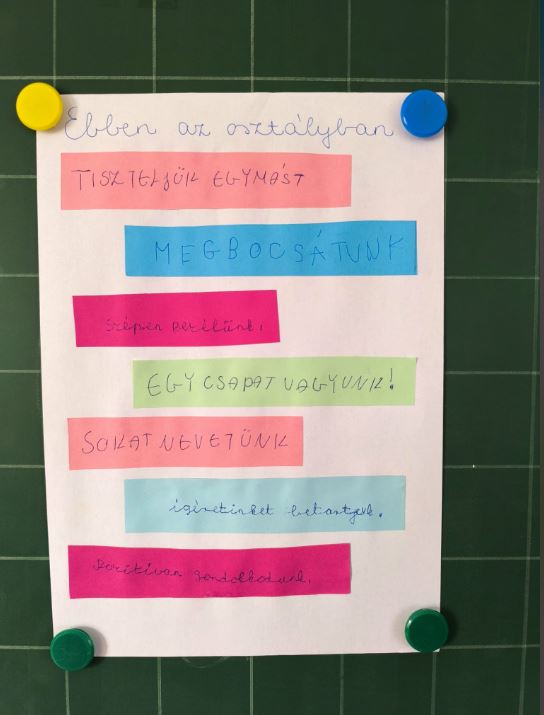 Ebben az osztályban
TISZTELJÜK EGYMÁST
MEGBOCSÁTUNK
szépen kérünk.
EGY CSAPAT VAGYUNK!
SOKAT NEVETÜNK
igéretinket betartjuk.
Pozitívan gondolkodunk.